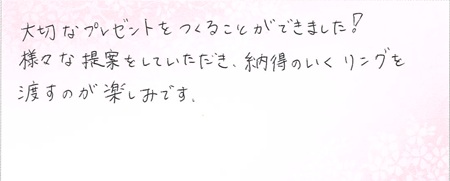 大切なプレゼントをつくることができました!
様々な提案をしていただき、納得のいくリングを
渡すのが楽しみです。